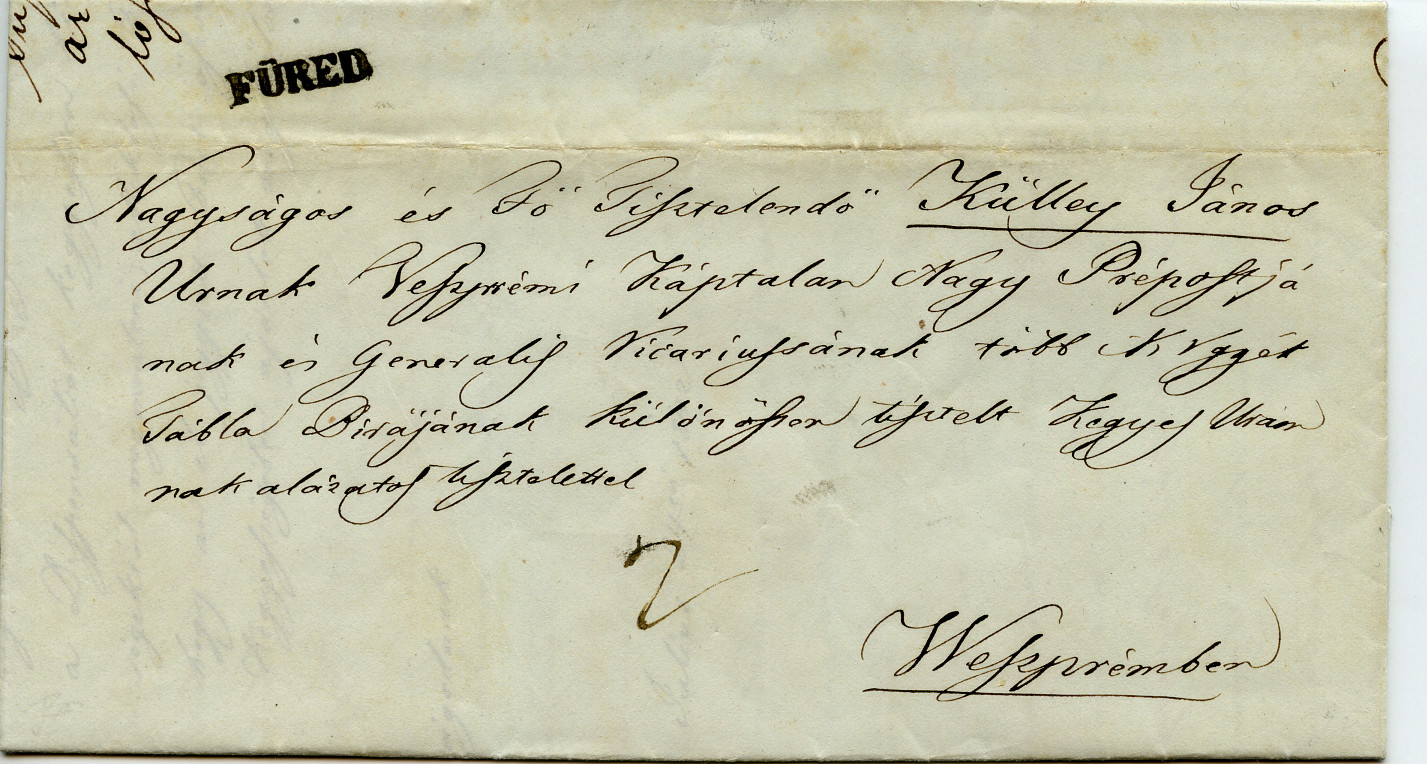 FÜRED
Nagyságos és Fő Tisztelendő Külley János
Urnak Veszprémi Káptalan Nagy Prépostjá
nak és Generalis Vicariussának több N. Vgyék
Tábla Birájának különössen tisztelt Kegyes Uram
nak alázatos tisztelettel
2
Weszprémben